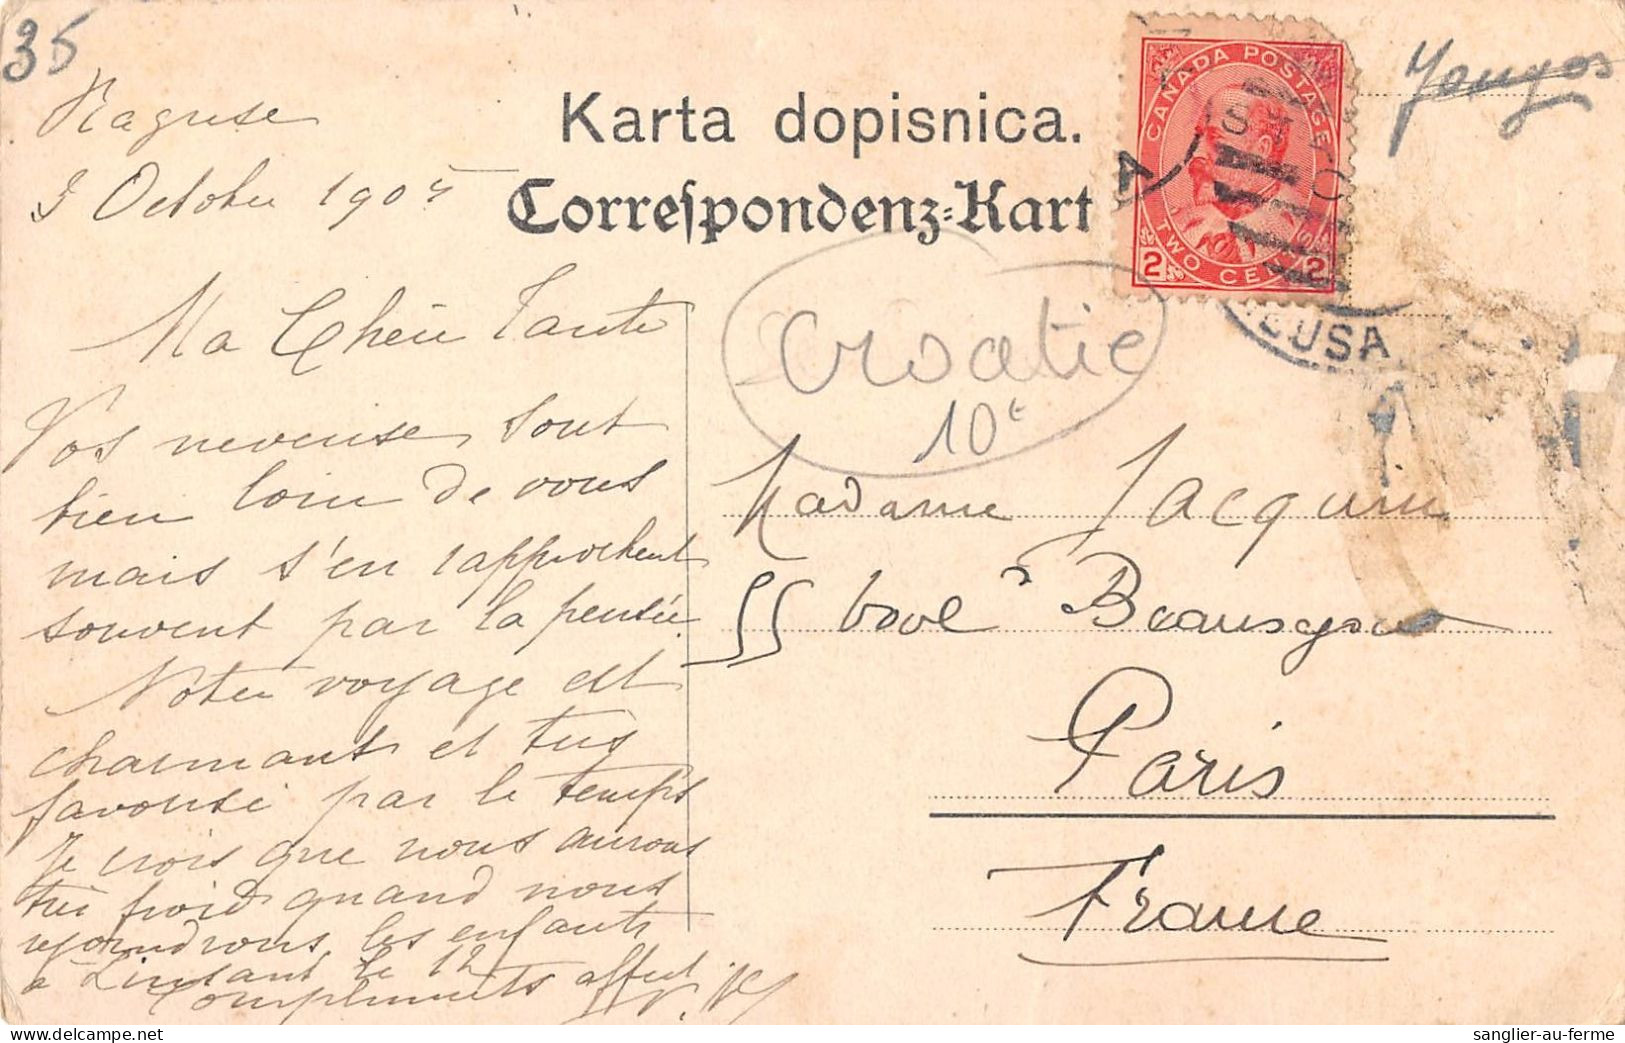 35
Raguse
3 Octobre 1905
Ma Chère Tante
Vos neveuse sont
bien loin de vous
mais s'en rapprochent
souvent par la pensée.
Notre voyage est
charmant et très
favorisé par le temps
Je crois que nous aurons
très froid quand nous
rejoindrons les enfants
à le 12
Compliments affect.
Karta dopisnica.
Correspondenz-Kart
CANADA POSTAGE
2 TWO CE 2
USA
Croatie
10€
Madame Jacquin
55 boul
Paris
France
sanglier-au-ferme